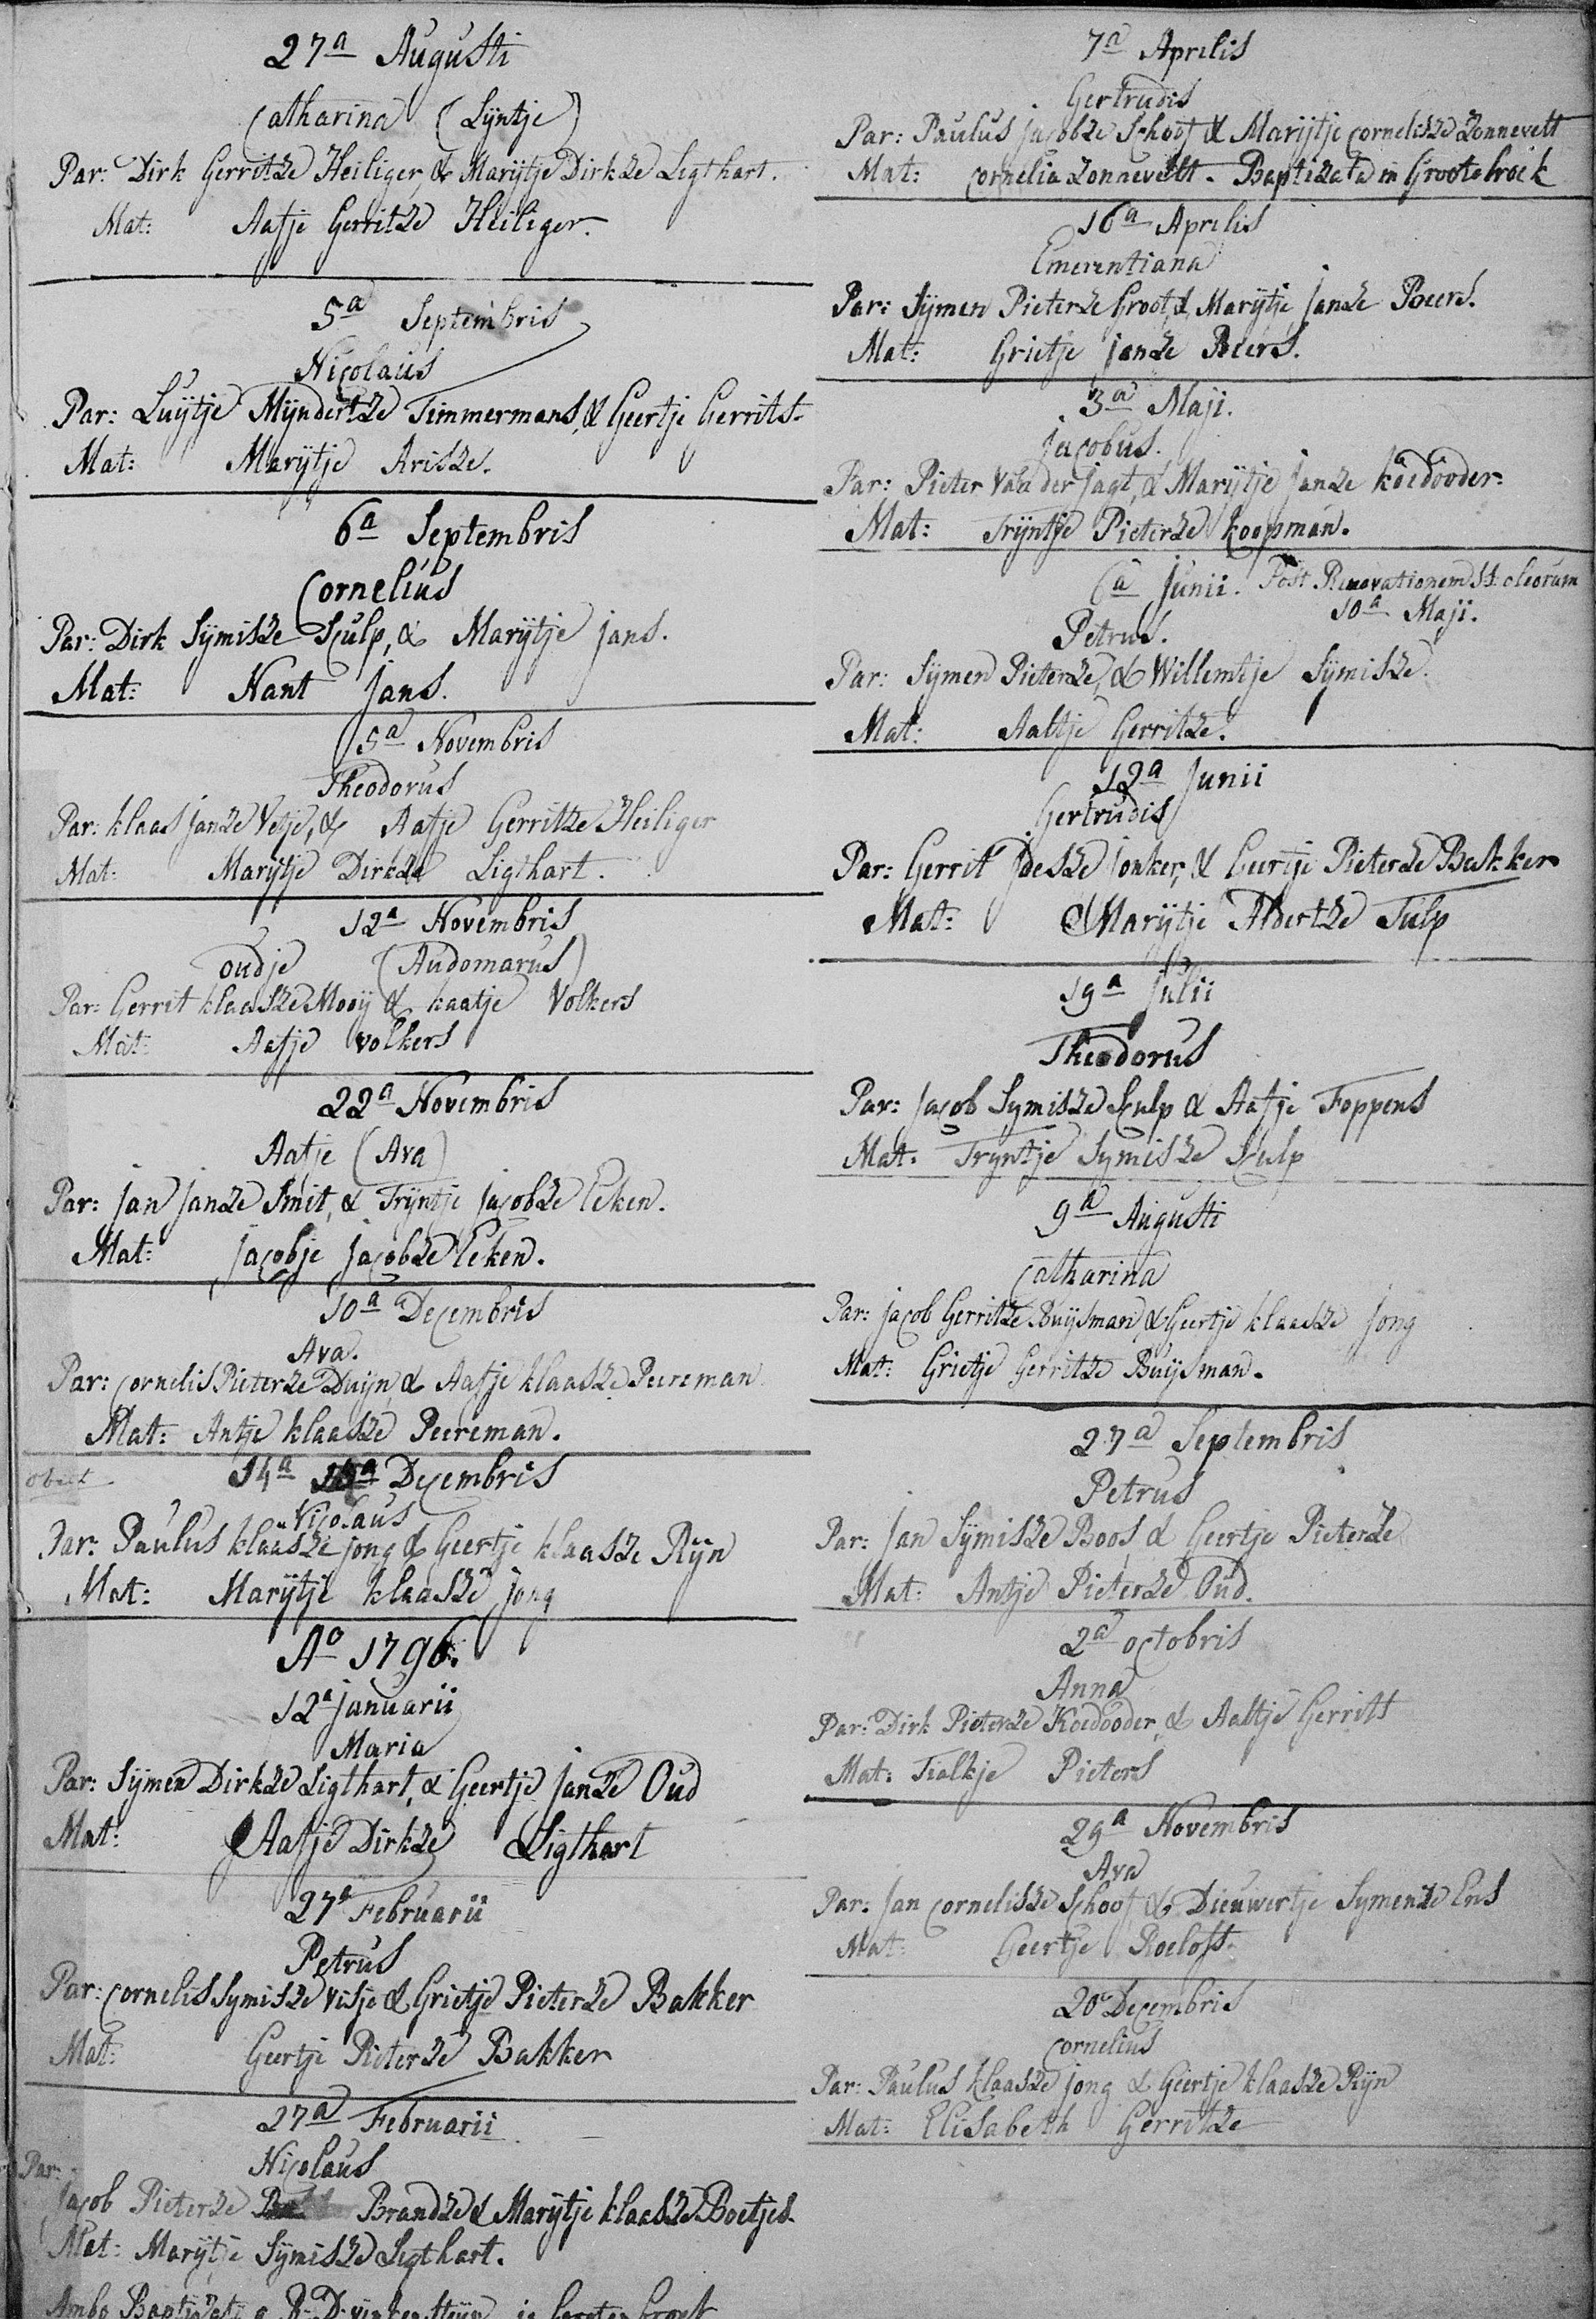 27a Augusti
Catharina (Lijntje)
Par: Dirk Gerritze Heiliger, & Marijtje Dirkze Ligthart.
Mat: Aafje Gerritze Heiliger.
5a Septembris
Nicolaus
Par: Luijtje Mijndertze Timmermans, & Geertje Gerrits.
Mat: Marijtje Arisze.
6a Septembris
Cornelius
Par: Dirk Sijmisze Sculp, & Marijtje jans.
Mat: Nant jans.
5a Novembris
Theodorus
Par: klaas janze Vetje, & Aafje Gerritze Heiliger
Mat: Marijtje Dirkze Ligthart.
12a Novembris
oudje (Audomarus)
Par: Gerrit klaasze Mooij & kaatje Volkers
Mat: Aafje volkers
22a Novembris
Aafje (Ava)
Par: jan janze Smit, & Trijntje jacobze Eeken.
Mat: jacobje jacobze Eeken.
10a Decembris
Ava.
Par: Cornelis Pieterze Duijn, & Aafje klaasze Peereman
Mat: Antje klaasze Peereman.
obiit 14a Decembris
Nicolaus
Par: Paulus klaasze jong & Geertje klaasze Rijn
Mat: Marijtje klaasze jong
Ao 1796.
12a januarii
Maria
Par: Sijmen Dirkze Ligthart, & Geertje janze Oud
Mat: Aafje Dirkze Ligthart
27a Februarii
Petrus
Par: Cornelis Symisze Visje & Grietje Pieterze Bakker
Mat: Geertje Pieterze Bakker
27a Februarii
Nicolaus
Par:
Jacob Pieterze Brandze & Marijtje klaasze Boetjes.
Mat: Marijtje Sijmisze Ligthart.
Ambo Baptizati a
7a Aprilis
Gertrudis
Par: Paulus jacobze Schoof & Marijtje Cornelisze Zonnevelt
Mat: Cornelia Zonnevelt. Baptizata in Grootebroek
16a Aprilis
Emerentiana
Par: Sijmen Pieterze Groot, & Marijtje janze Beers.
Mat: Grietje janze Beers.
3a Maji.
jacobus.
Par: Pieter van der jagt, & Marijtje janze koedooder.
Mat: Trijntje Pieterze koopman.
6a junii. Post Renovationem SS. oleorum
10a Maji.
Petrus.
Par: Sijmen Pieterze, & Willemtje Sijmisze.
Mat: Aaltje Gerritze.
12a junii
Gertrudis
Par: Gerrit jdesze jonker, & Geertje Pieterze Bakker
Mat: Marijtje Aldertze Tulp
19a julii
Theodorus
Par: jacob Symisze Sculp & Aafje Foppens
Mat: Tryntje Symisze Sculp
9a Augusti
Catharina
Par: jacob Gerritze Buijsman & Geertje klaasze jong
Mat: Grietje Gerritze Buijsman.
27a Septembris
Petrus
Par: jan Sijmisze Boos & Geertje Pieterze
Mat: Antje Pieterze Oud.
2a octobris
Anna
Par: Dirk Pieterze Koedooder, & Aaltje Gerrits
Mat: Pieters
29a Novembris
Ava
Par: Jan Cornelisze Schoof, & Dieuwertje Symenze Ens
Mat: Geertje Roelofs.
20a Decembris
Cornelius
Par: Paulus klaasze jong & Geertje klaasze Rijn
Mat: Elisabeth Gerritze